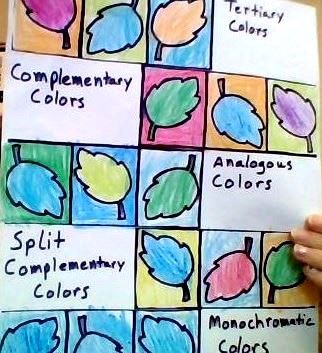 Tertiary
Colors
Complementary
Colors
Analogous
Colors
Split
Complementary
Colors
Monochromatic
Colors